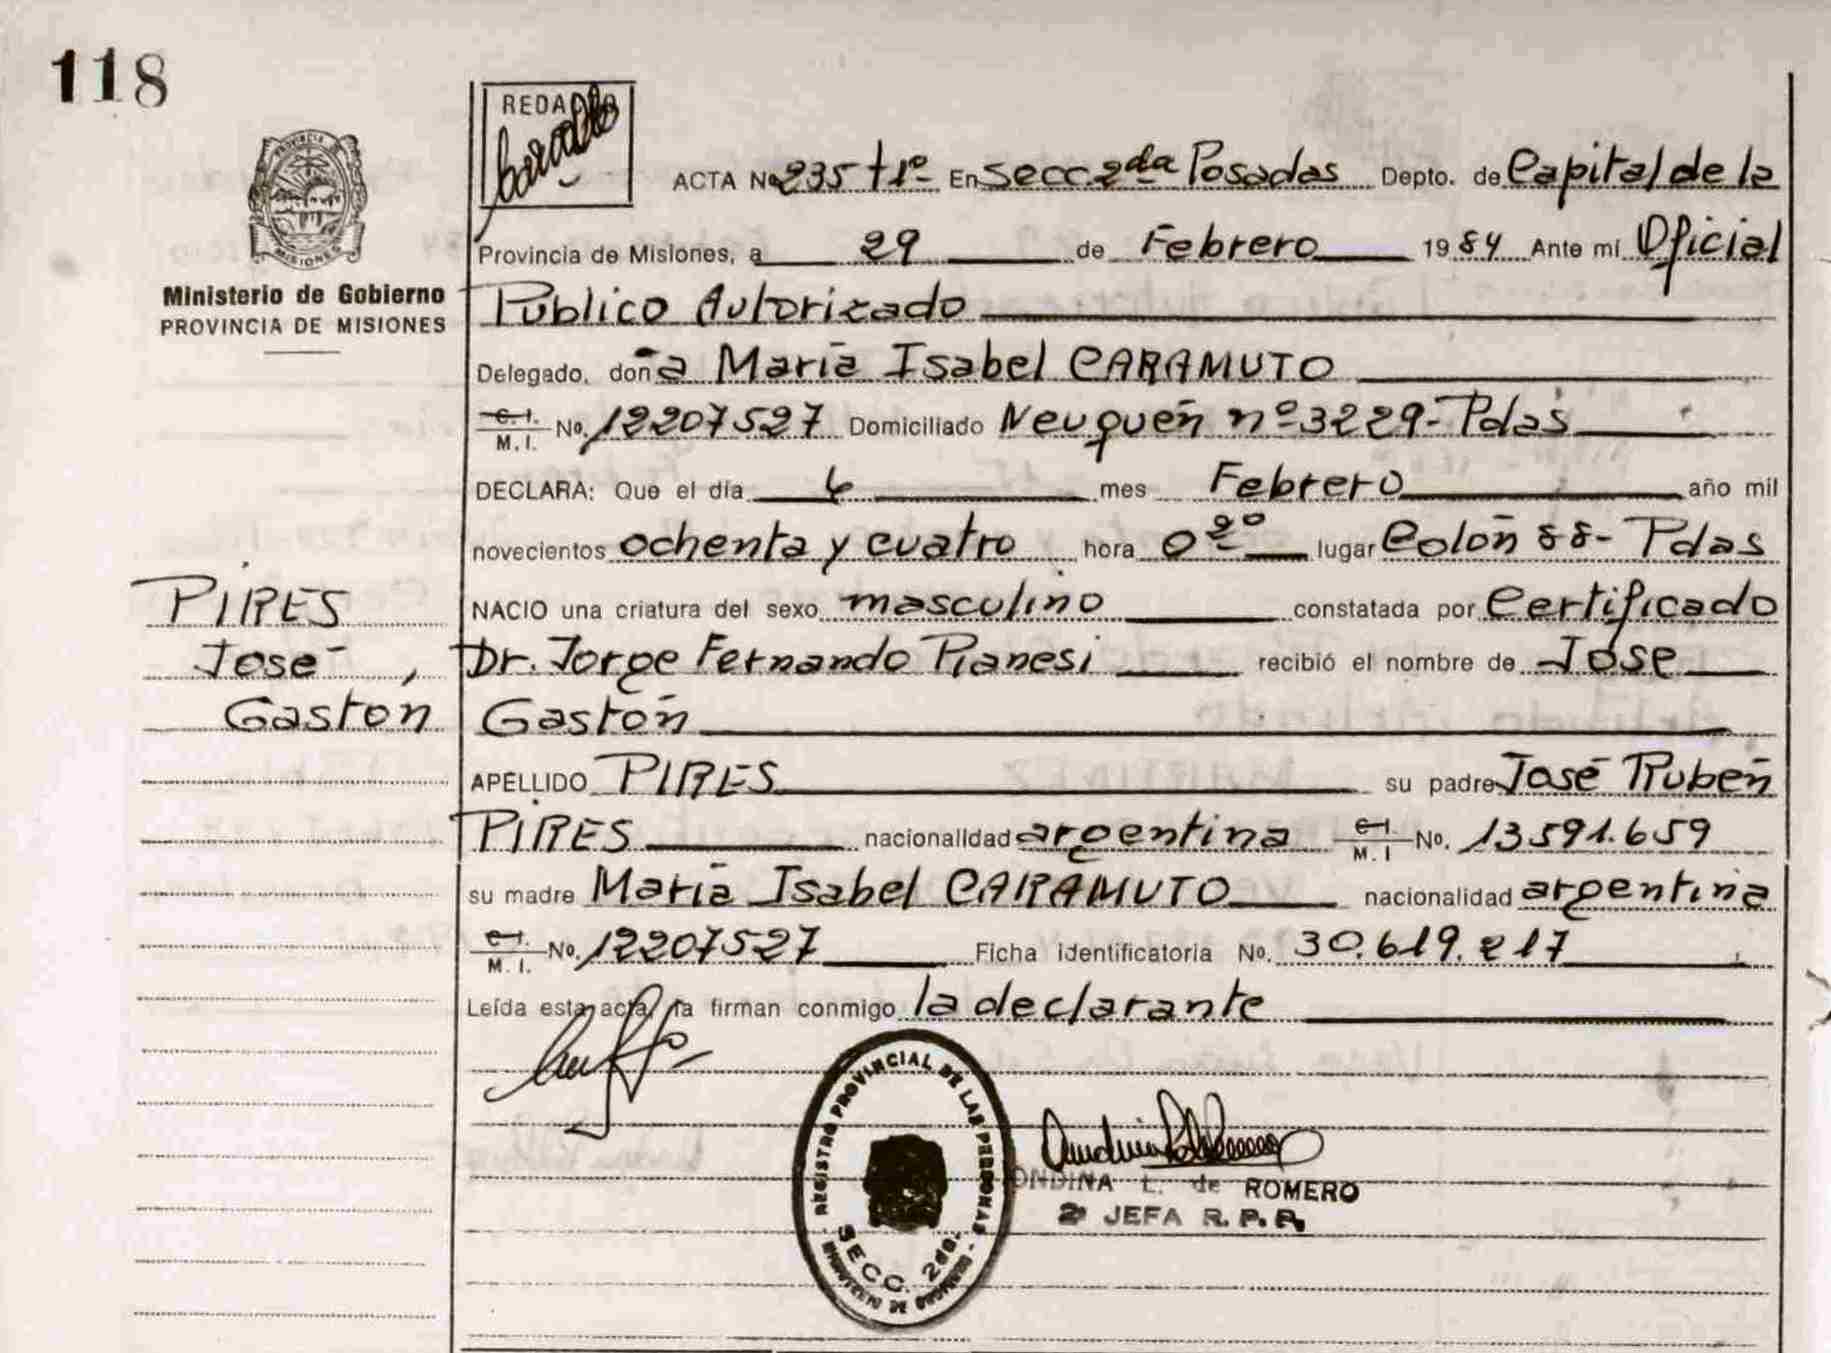 118
PROVINCIA DE
MISIONES
Ministerio de Gobierno
PROVINCIA DE MISIONES
ACTA Nº 235 tº1º En Secc. 2da Posadas Depto. de Capital de la
Provincia de Misiones, a 29 de Febrero 1984 Ante mí Oficial
Público Autorizado
Delegado, doña María Isabel CARAMUTO
C.I. M.I. Nº. 12207527 Domiciliado Neuquén nº 3229- Pdas
DECLARA: Que el día 6 mes Febrero año mil
novecientos ochenta y cuatro hora 0 20 lugar Colón 88- Pdas
NACIO una criatura del sexo masculino constatada por Certificado
Dr. Jorge Fernando Pianesi recibió el nombre de José
Gastón
APELLIDO PIRES su padre José Rubén
PIRES nacionalidad argentina C.I. M.I Nº. 13591.659
su madre María Isabel CARAMUTO nacionalidad argentina
C.I. M.I. Nº. 12207527 Ficha identificatoria Nº. 30.619.217
Leída esta acta, la firman conmigo la declarante
PIRES
José,
Gastón
REGISTRO PROVINCIAL DE LAS PERSONAS
SECC. 2da.
MINISTERIO DE GOBIERNO
ONDINA L. de ROMERO
2ª JEFA R. P. P.